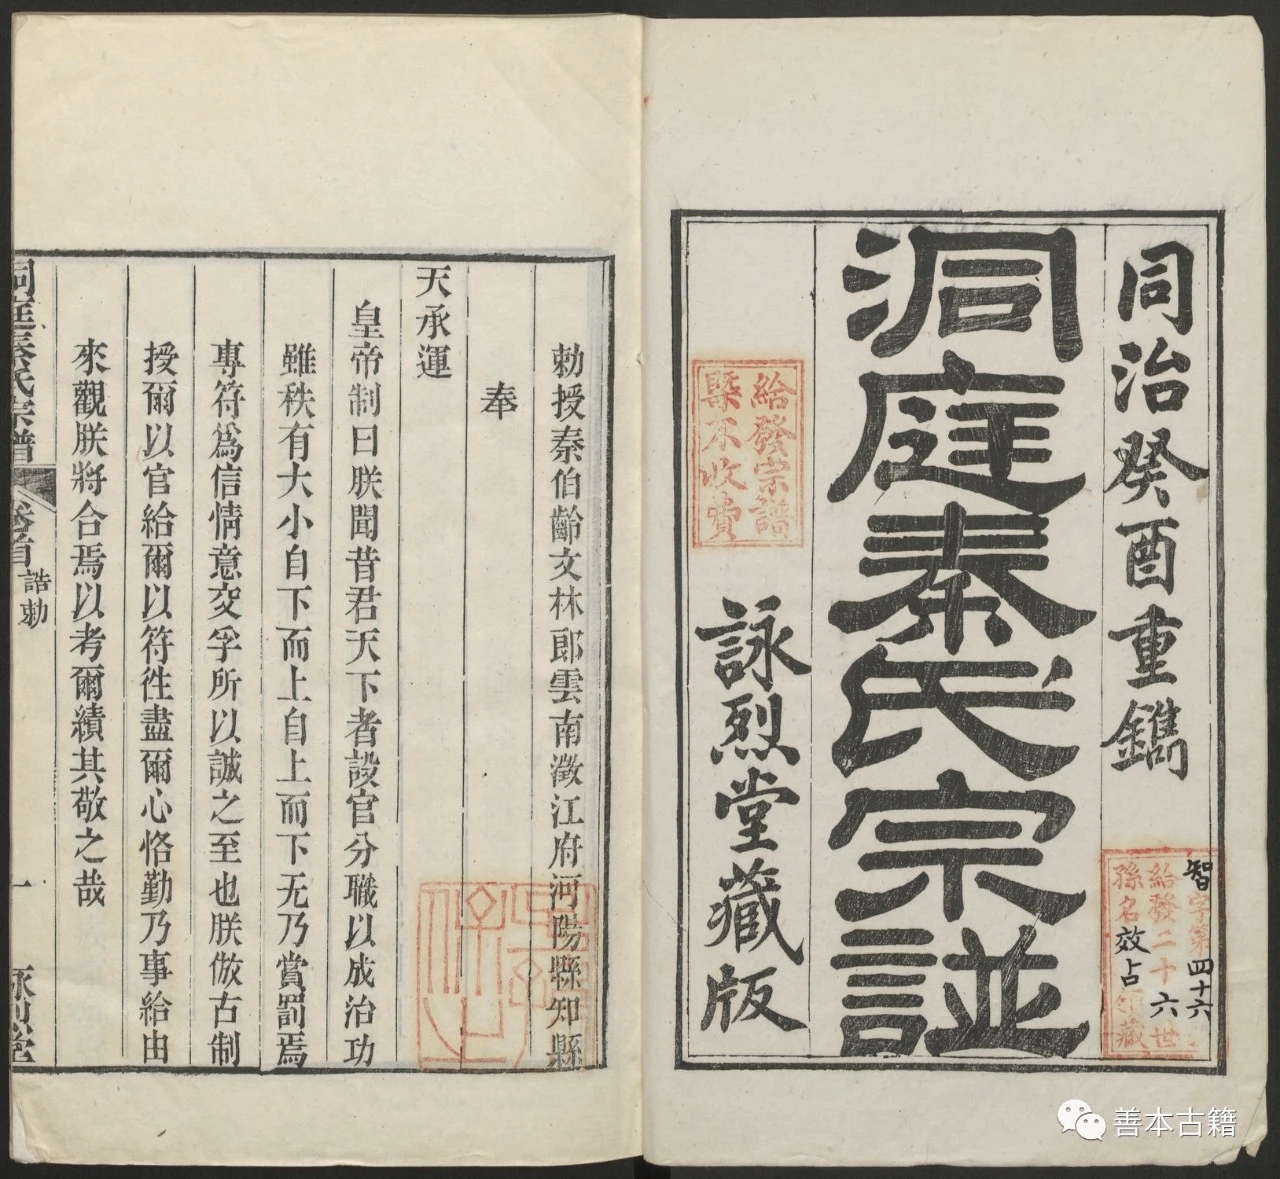 同治癸酉重鐫
洞庭秦氏宗譜
詠烈堂藏版
給發宗譜
槩不收費
智字第四十六
給發二十六世
孫名效占領藏
勅授秦伯齡文林郎雲南澂江府河陽縣知縣
奉
天承運
皇帝制曰朕聞昔君天下者設官分職以成治功
雖秩有大小自下而上自上而下无乃賞罰焉
專符爲信情意交孚所以誠之至也朕倣古制
授爾以官給爾以符徃盡爾心恪勤乃事給由
來觀朕將合焉以考爾績其敬之哉
洞庭秦氏宗譜
卷首
誥勅
一
詠烈堂
善本古籍